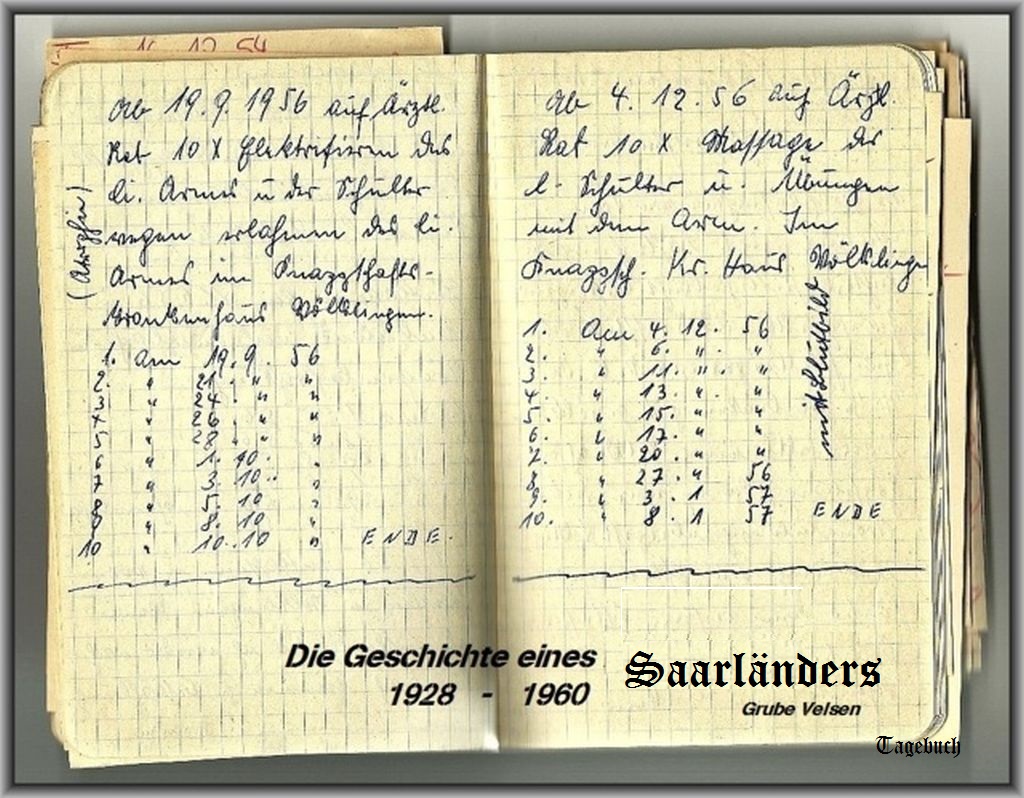 Ab 19.9.1956 auf Ärztl.
Rat 10 X Elektrisieren des
li. Armes u der Schulter
wegen erlahmen des li.
Armes im Knappschafts-
krankenhaus Völklingen.
1. Am 19.9. 56
2. " 21. " "
3 " 24. " "
4 " 26. " "
5 " 28. " "
6 " 1. 10. "
7 " 3. 10.. "
8 " 5. 10 "
9 " 8. 10 "
10 " 10..10 " ENDE.
Ab 4.12.56 auf Ärztl.
Rat 10 X Massage der
l. Schulter u. Übungen
mit dem Arm. Im
Knappsch. Kr. Haus Völklingen
mit
1. Am 4. 12. 56
2. " 6. " "
3. " 11. " . "
4. " 13. " "
5. " 15. " "
6. " 17. " "
7. " 20. " "
8 " 27. " 56
9. " 3. 1 57
10. " 8. 1 57 ENDE
Die Geschichte eines Saarländers
1928 - 1960
Grube Velsen
Tagebuch